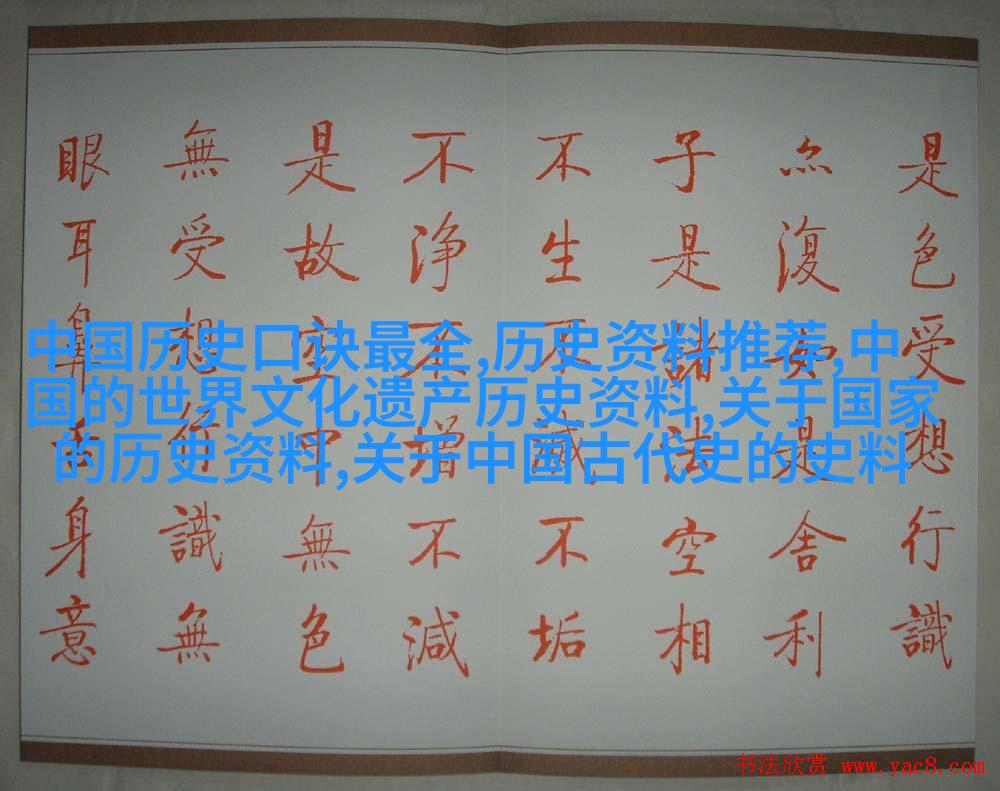 是色受想行識
亦復如是舍利
子是諸法空相
不生不滅不垢
不净不增不減
是故空中無色
無受想行識無
眼耳鼻舌身意
中国历史口诀最全,历史资料推荐,中
国的世界文化遗产历史资料,关于国家
的历史资料,关于中国古代史的史料
书法欣赏 www.yac8.com